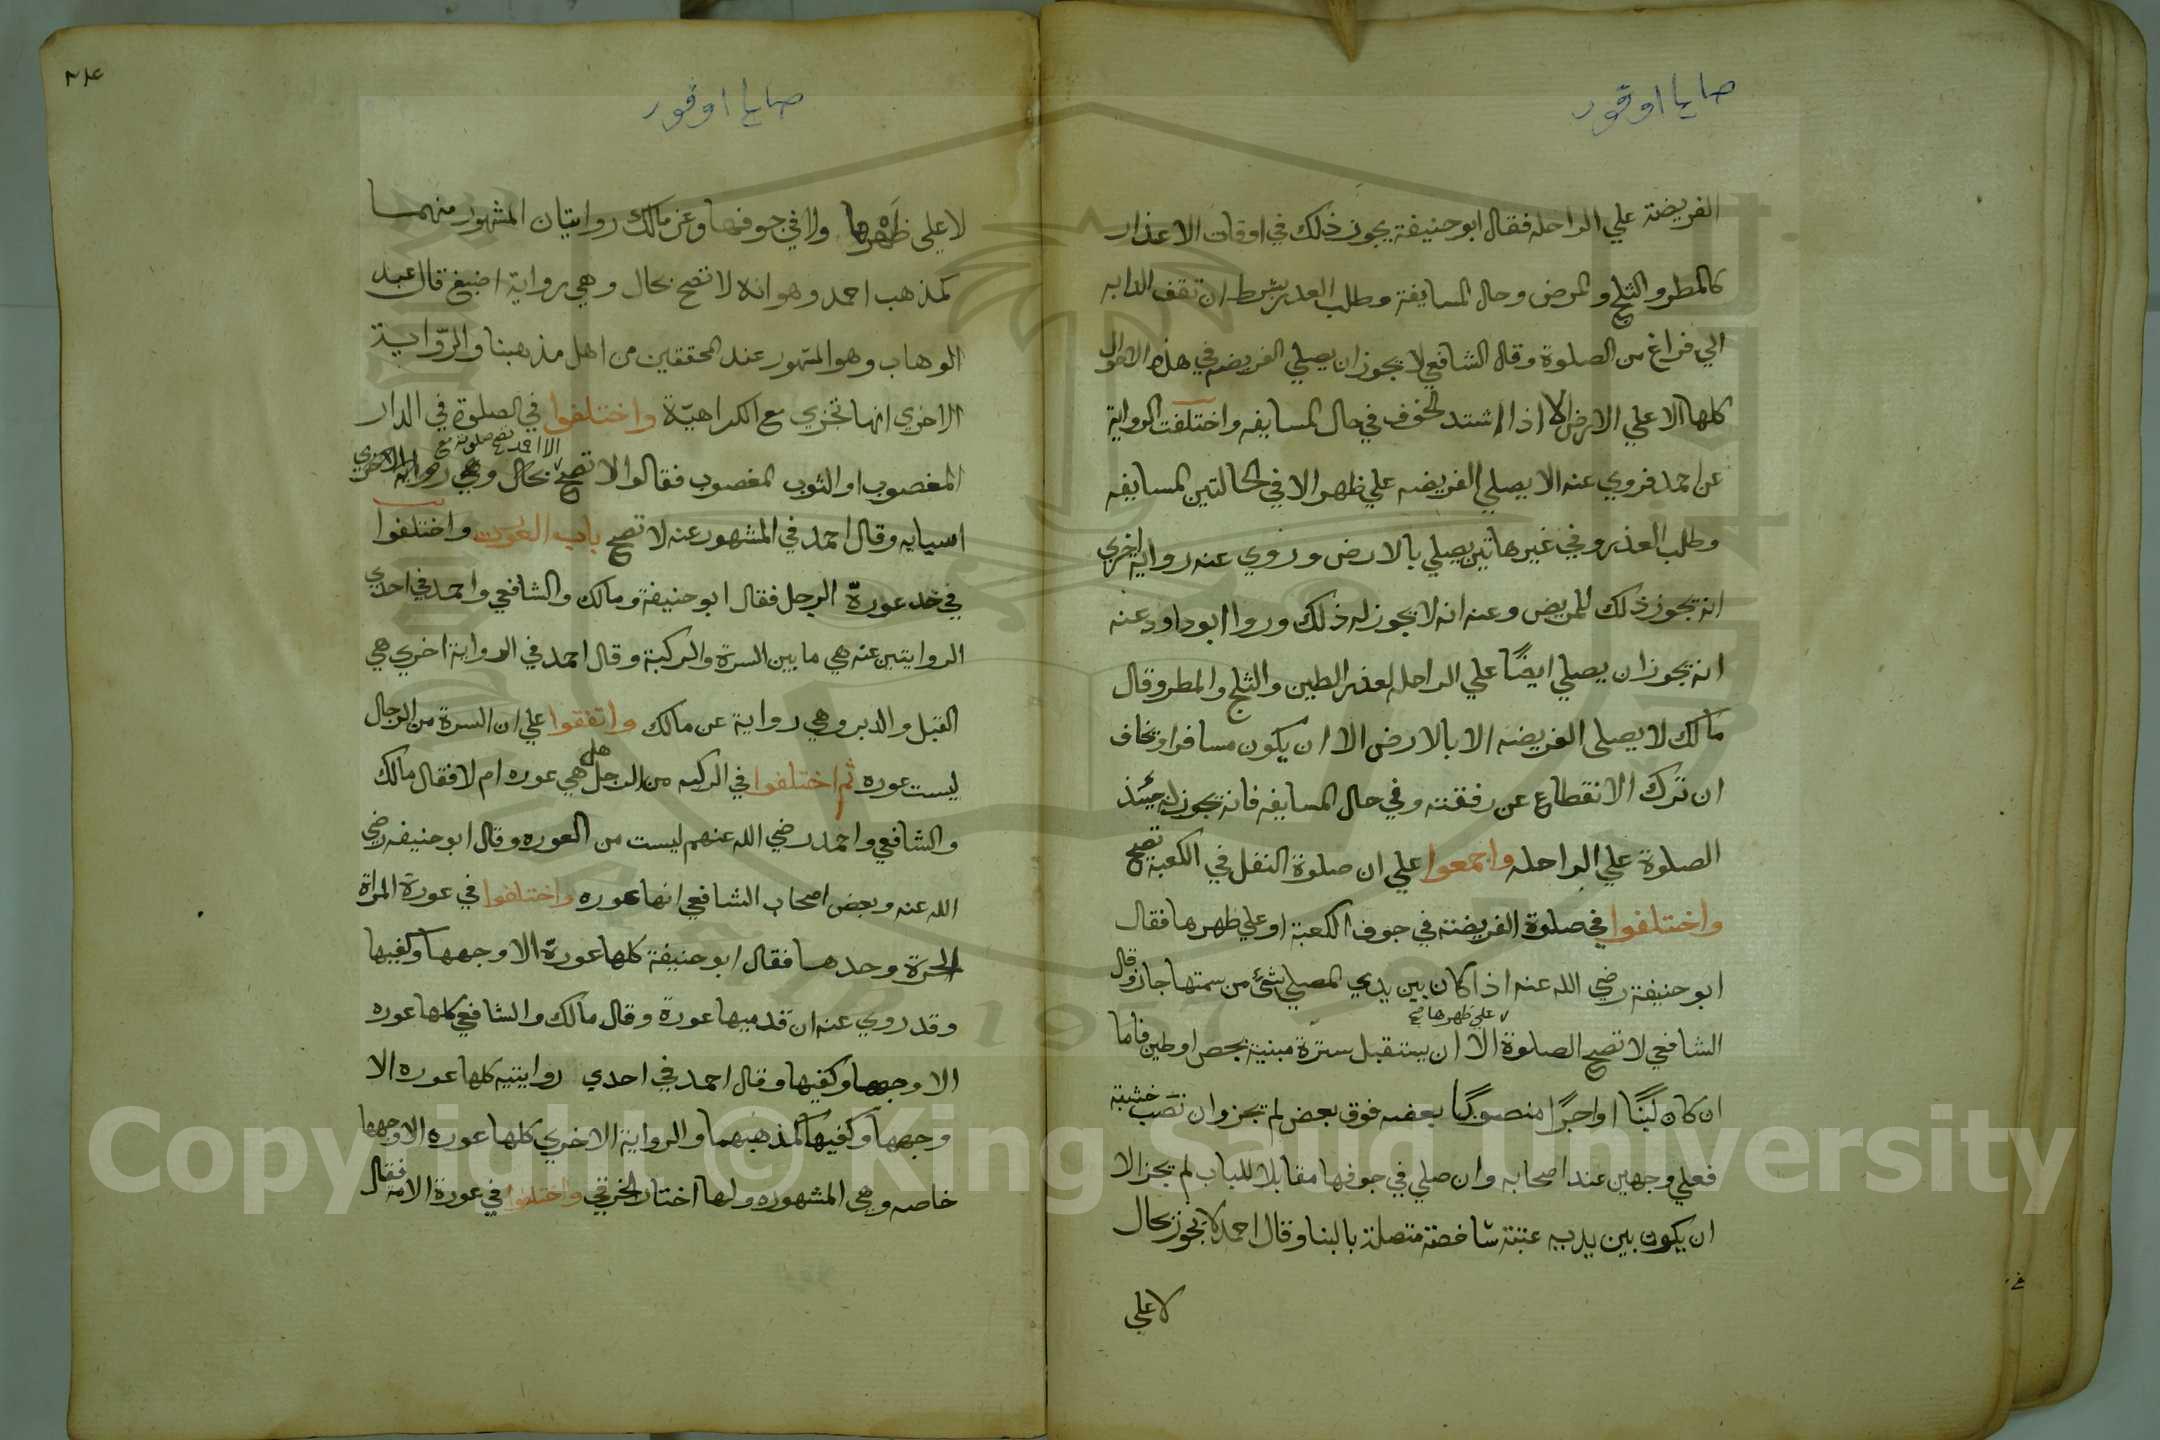 صايا اوقور
الفريضة علي الراحله فقال ابو حنيفة يجوز ذلك في اوقات الاعذار
كالمطر والثلج والمرض وحال المسايفة وطلب العدر بشرط ان تقف الدابه
الي فراغ من الصلوة وقال الشافعي لا يجوز ان يصلي الفريضه في هذه الاحوال
كلها الا علي الارض الا اذا اشتد الخوف في حال المسايفه واختلفت الرواية
عن احمد فروي عنه الا يصلي الفريضه علي ظهر الا في الحالتين المسايفه
وطلب العذر وفي غير هاتين يصلي بالارض وروي عنه رواية اخري
انه يجوز ذلك للمريض وعنه انه لا يجوز له ذلك وروا ابو داود عنه
انه يجوز ان يصلي ايضًا علي الراحله لعذر الطين والثلج والمطر وقال
مالك لا يصلى الفريضه الا بالارض الا ان يكون مسافرا وتخاف
ان ترك الانقطاع عن رفقته وفي حال المسايفه فانه يجوز له حينئذ
الصلوة علي الراحله واجمعوا علي ان صلوة النفل في الكعبة تصح
واختلفوا في صلوة الفريضة في جوف الكعبة او علي ظهرها فقال
ابو حنيفة رضي الله عنه اذا كان بين يدي المصلي شئ من سمتها جاز وقال
علي ظهرها صح
الشافعي لا تصح الصلوة الا ان يستقبل سترة مبنية بجص او طين فاما
ان كان لبنًا او اجرًا منصوبًا بعضه فوق بعض لم تجز وان نصب خشبة
فعلي وجهين عند اصحابه وان صلي في جوفها مقابلا للباب لم يجز الا
ان يكون بين يديه عتبة شاخصة متصلة بالبنا وقال احمد لا يجوز بحال
لا علي
٢١٤
صايا اوقور
لا علي ظهرها ولا في جوفها وعن مالك روايتان المشهور منهما
كمذهب احمد وهو انه لا تصح بحال وهي رواية اصبغ قال عبد
الوهاب وهو المشهور عند المحققين من اهل مذهبنا والروّاية
الاخري انها تجزي مع الكراهيّة واختلفوا في الصلوة في الدار
الا احمد تصح صلوته مع
المغصوب او الثوب المغصوب فقالوا لا تصح بحال وهي رواية الاخري
اسيايه وقال احمد في المشهور عنه لا تصح باب العورت واختلفوا
في حد عورة الرجل فقال ابو حنيفة ومالك والشافعي واحمد في احدي
الروايتين عنه هي ما بين السرة والركبة وقال احمد في الرواية اخري هي
القبل والدبر وهي رواية عن مالك واتفقوا علي ان السرة من الرجال
ليست عوره ثم اختلفوا في الركبه من الرجل هل هي عوره ام لا فقال مالك
والشافعي واحمد رضي الله عنهم ليست من العوره وقال ابو حنيفه رضي
الله عنه وبعض اصحاب الشافعي انها عوره واختلفوا في عورة المراة
الحرة وحدها فقال ابو حنيفة كلها عورة الا وجهها وكفيها
وقد روي عنه ان قدميها عورة وقال مالك والشافعي كلها عوره
الا وجهها وكفيها وقال احمد في احدي روايتيه كلها عوره الا
وجهها وكفيها كمذهبهما والرواية الاخري كلها عوره الا وجهها
خاصه وهي المشهوره ولها اختار الخرقي واختلفوا في عورة الامة فقال
Copyright © King Saud University
1957